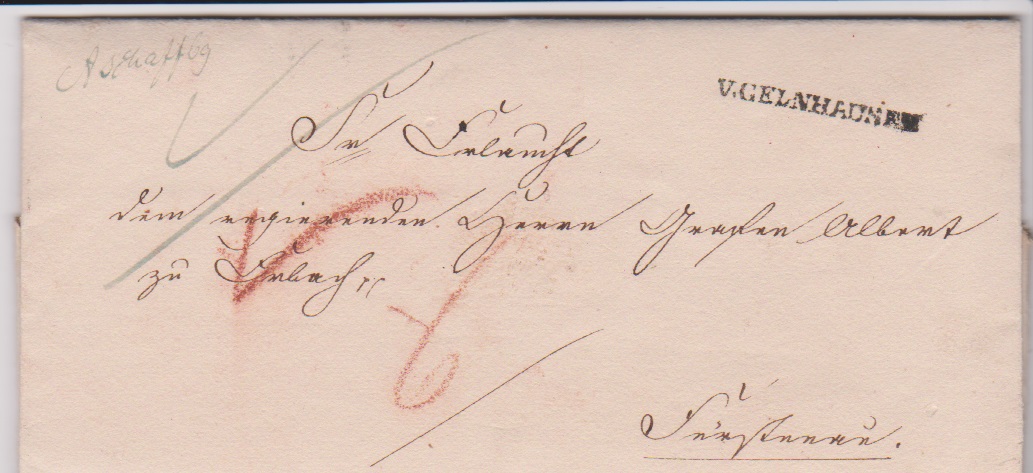 Aschaffbg
V.GELNHAUSEN
Sr Erlaucht
dem regierenden Herrn Grafen Albert
zu Erbach pp
6
Fürstenau.